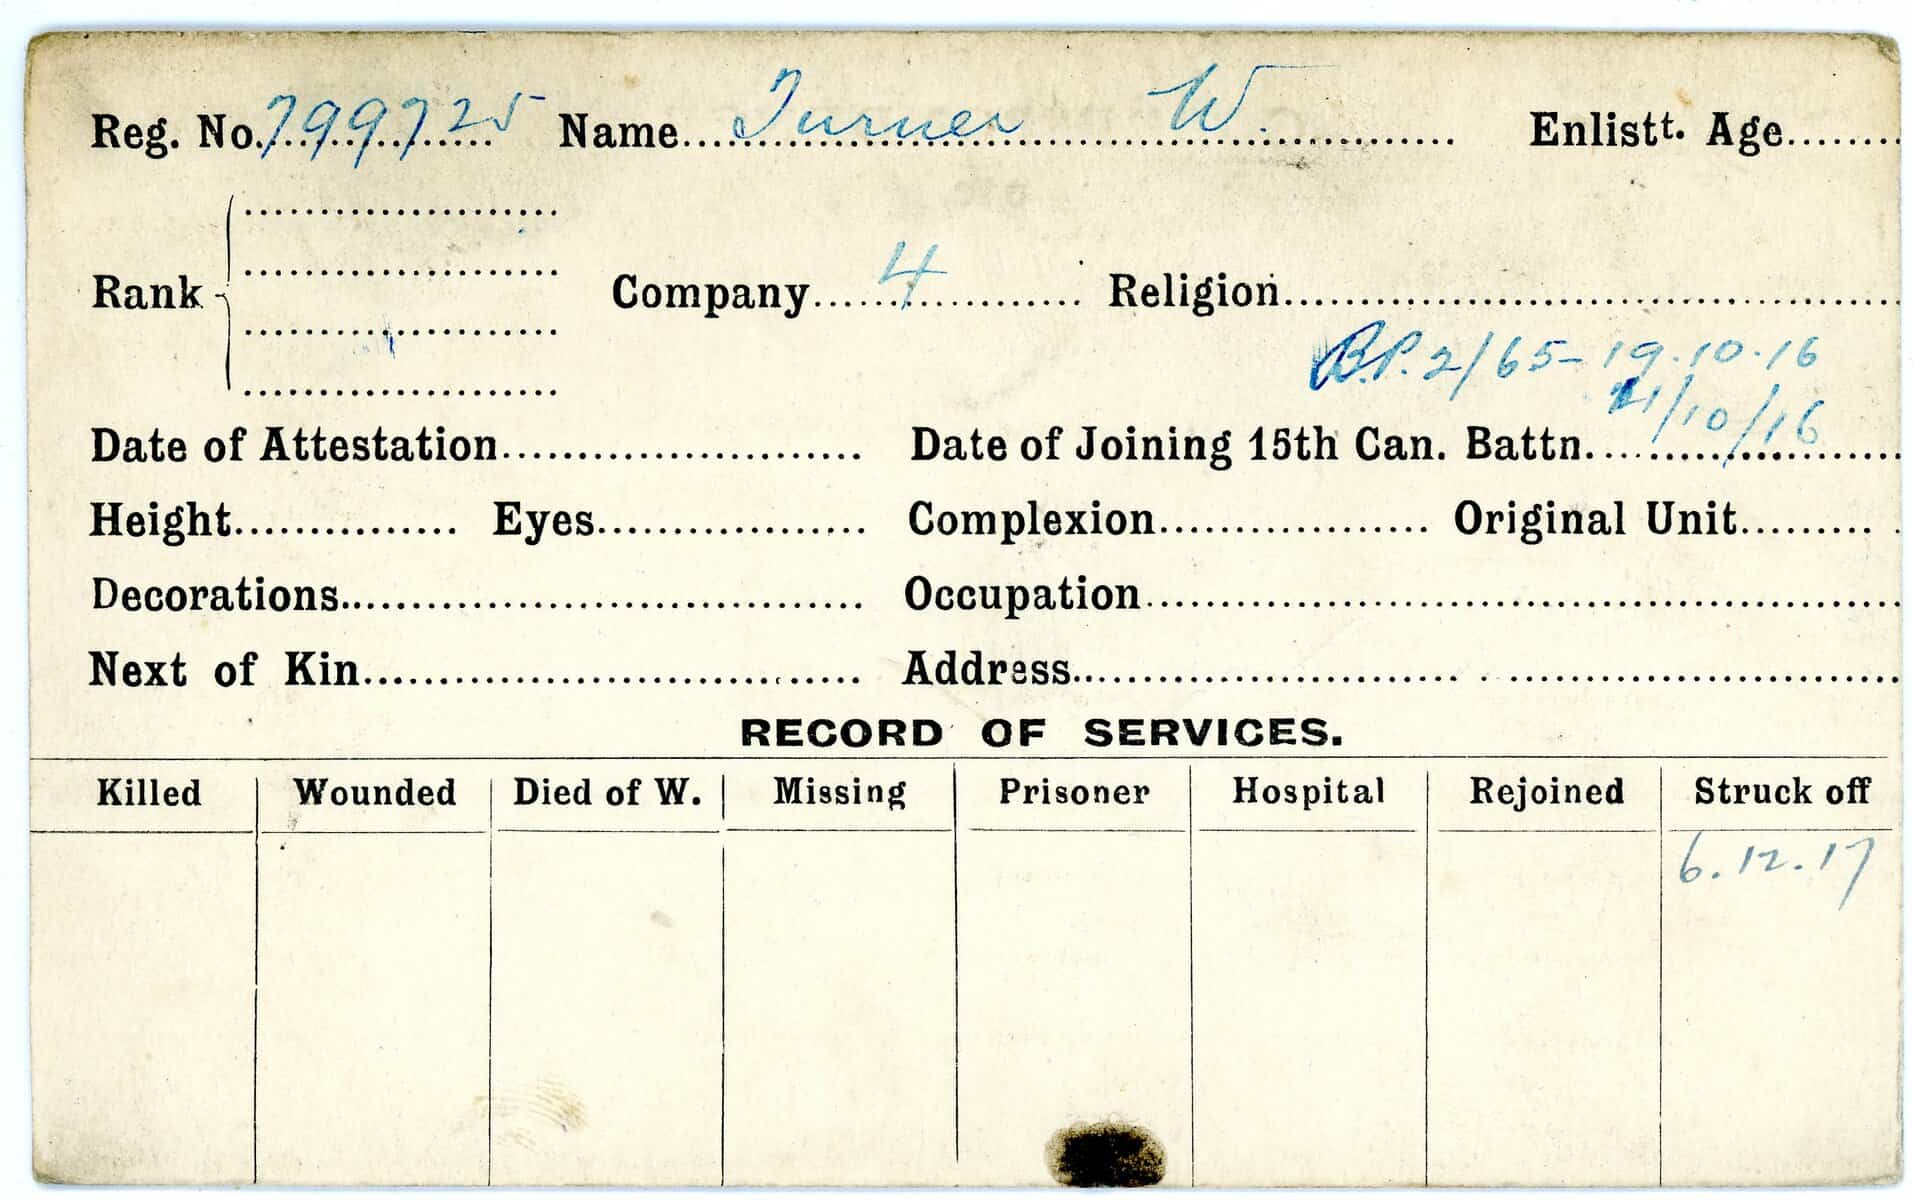 Reg. No. 799725 Name Turner W. Enlistt. Age
Rank Company 4 Religion
B.P. 2/65 - 19.10.16
21/10/16
Date of Attestation Date of Joining 15th Can. Battn.
Height Eyes Complexion Original Unit
Decorations Occupation
Next of Kin Address
RECORD OF SERVICES.
Killed Wounded Died of W. Missing Prisoner Hospital Rejoined Struck off
6.12.17